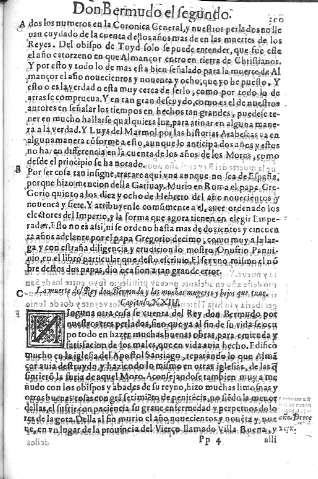 Don Bermudo el segundo. 310
A dos los numeros en la Coronica General, y nuestros perlados no lle
uan cuydado de la cuenta destos años mas de en las muertes de los
Reyes. Del obispo de Tuyd solo se puede entender, que fue este
el año catorzeno en que Almançor entro en tierra de Christianos.
Y por esto y todo lo de mas esta bien señalado para la muerte de Al
mançor el año nouecientos y nouenta y ocho, que yo he puesto. Y
esto o es la verdad o esta muy cerca de serlo, como por todo lo de
atras se comprueua. Y en tan gran descuydo, como es el de nuestros
autores en señalar los tiempos en hechos tan grandes, puedese te-
ner en mucho hallarse qualquiera luz, para atinar en alguna mane-
ra a la verdad. Y Luys del Marmol por las historias Arabescas va en
alguna manera conforme a esto, aunque lo anticipa dos años y estos
no haran differencia en la cuenta de los años de los Moros, como
desde el principio se ha notado.
B Por ser cosa tan insigne, tratare aqui vna aunque no sea de España,
porque hizo mencion della Garibay. Murio en Roma el papa Gre-
gorio quinto a los diez y ocho de Hebrero del año nouecientos y
nouenta y siete. Y atribuyenle comunmente a el, auer ordenado los
electores del Imperio, y la forma que agora tienen en elegir Empe-
rador. Esto no es assi, ni se ordeno hasta mas de dozientos y cincuen
ta años adelante por el papa Gregorio decimo, como muy a la lar-
ga y con estraña diligencia y erudicion lo mostro, Onufrio Panui-
nio, en el libro particular que desto escriuio. El ser vno mismo el nō
bre destos dos papas, dio ocasion a tan grande error.
C La muerte del Rey don Bermudo y las muchas mugeres y hijos que tuuo.
Capitulo XXIII.
Ninguna otra cosa se cuenta del Rey don Bermudo por
nuestros tres perlados, sino que ya al fin de su vida se ocu
po todo en hazer muchas buenas obras, para emienda y
satisfacion de los males, que en vida auia hecho. Edifico
mucho en la iglesia del Apostol Santiago, reparando lo que Alman
çor auia destruydo, y haziendo lo mismo en otras iglesias, de las q̃
sintierō la furia de aquel Moro. Aconsejandose tambien muy a me
nudo con los obispos y abades de su reyno, hizo muchas limosnas y
otras buenas obras con grā sentimiēto de penitēcia, no siēdo la menor
dellas, el sufrir con paciencia su graue enfermedad y perpetuos dolo
res de la gota. Della al fin murio el año nouecientos y nouenta y nue
ue, en vn lugar de la prouincia del Vierço llamado Villa Buena, y
Pp 4 alli